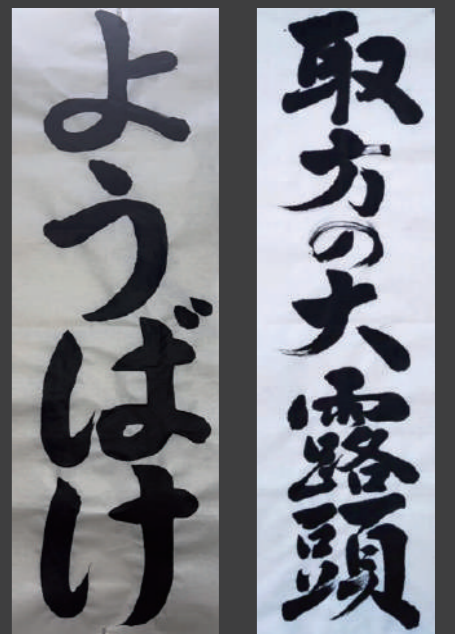 取方の大露頭
ようばけ